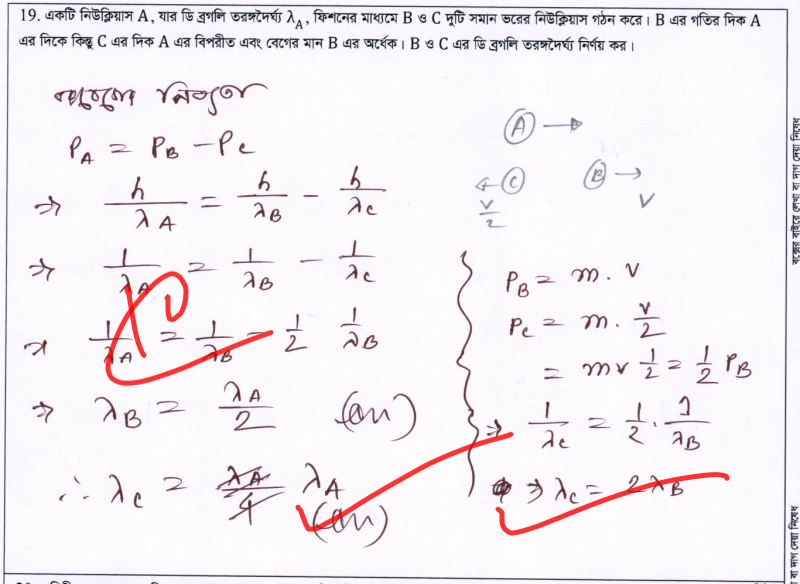 19. একটি নিউক্লিয়াস A, যার ডি ব্রগলি তরঙ্গদৈর্ঘ্য λ_A, ফিশনের মাধ্যমে B ও C দুটি সমান ভরের নিউক্লিয়াস গঠন করে। B এর গতির দিক A
এর দিকে কিন্তু C এর দিক A এর বিপরীত এবং বেগের মান B এর অর্ধেক। B ও C এর ডি ব্রগলি তরঙ্গদৈর্ঘ্য নির্ণয় কর।
নিত্যতা
P_A = P_B − P_C
⇒ h/λ_A = h/λ_B − h/λ_C
⇒ 1/λ_A = 1/λ_B − 1/λ_C
⇒ 1/λ_A = 1/λ_B − 1/2 1/λ_B
⇒ λ_B = λ_A/2 (Ans)
∴ λ_C = λ_A/4 λ_A
(Ans)
A →
← C B →
v/2 v
P_B = m . v
P_C = m . v/2
= mv 1/2 = 1/2 P_B
⇒ 1/λ_C = 1/2 . 1/λ_B
⇒ λ_C = 2λ_B
বক্সের বাইরে লেখা বা দাগ দেয়া নিষেধ
বা দাগ দেয়া নিষেধ